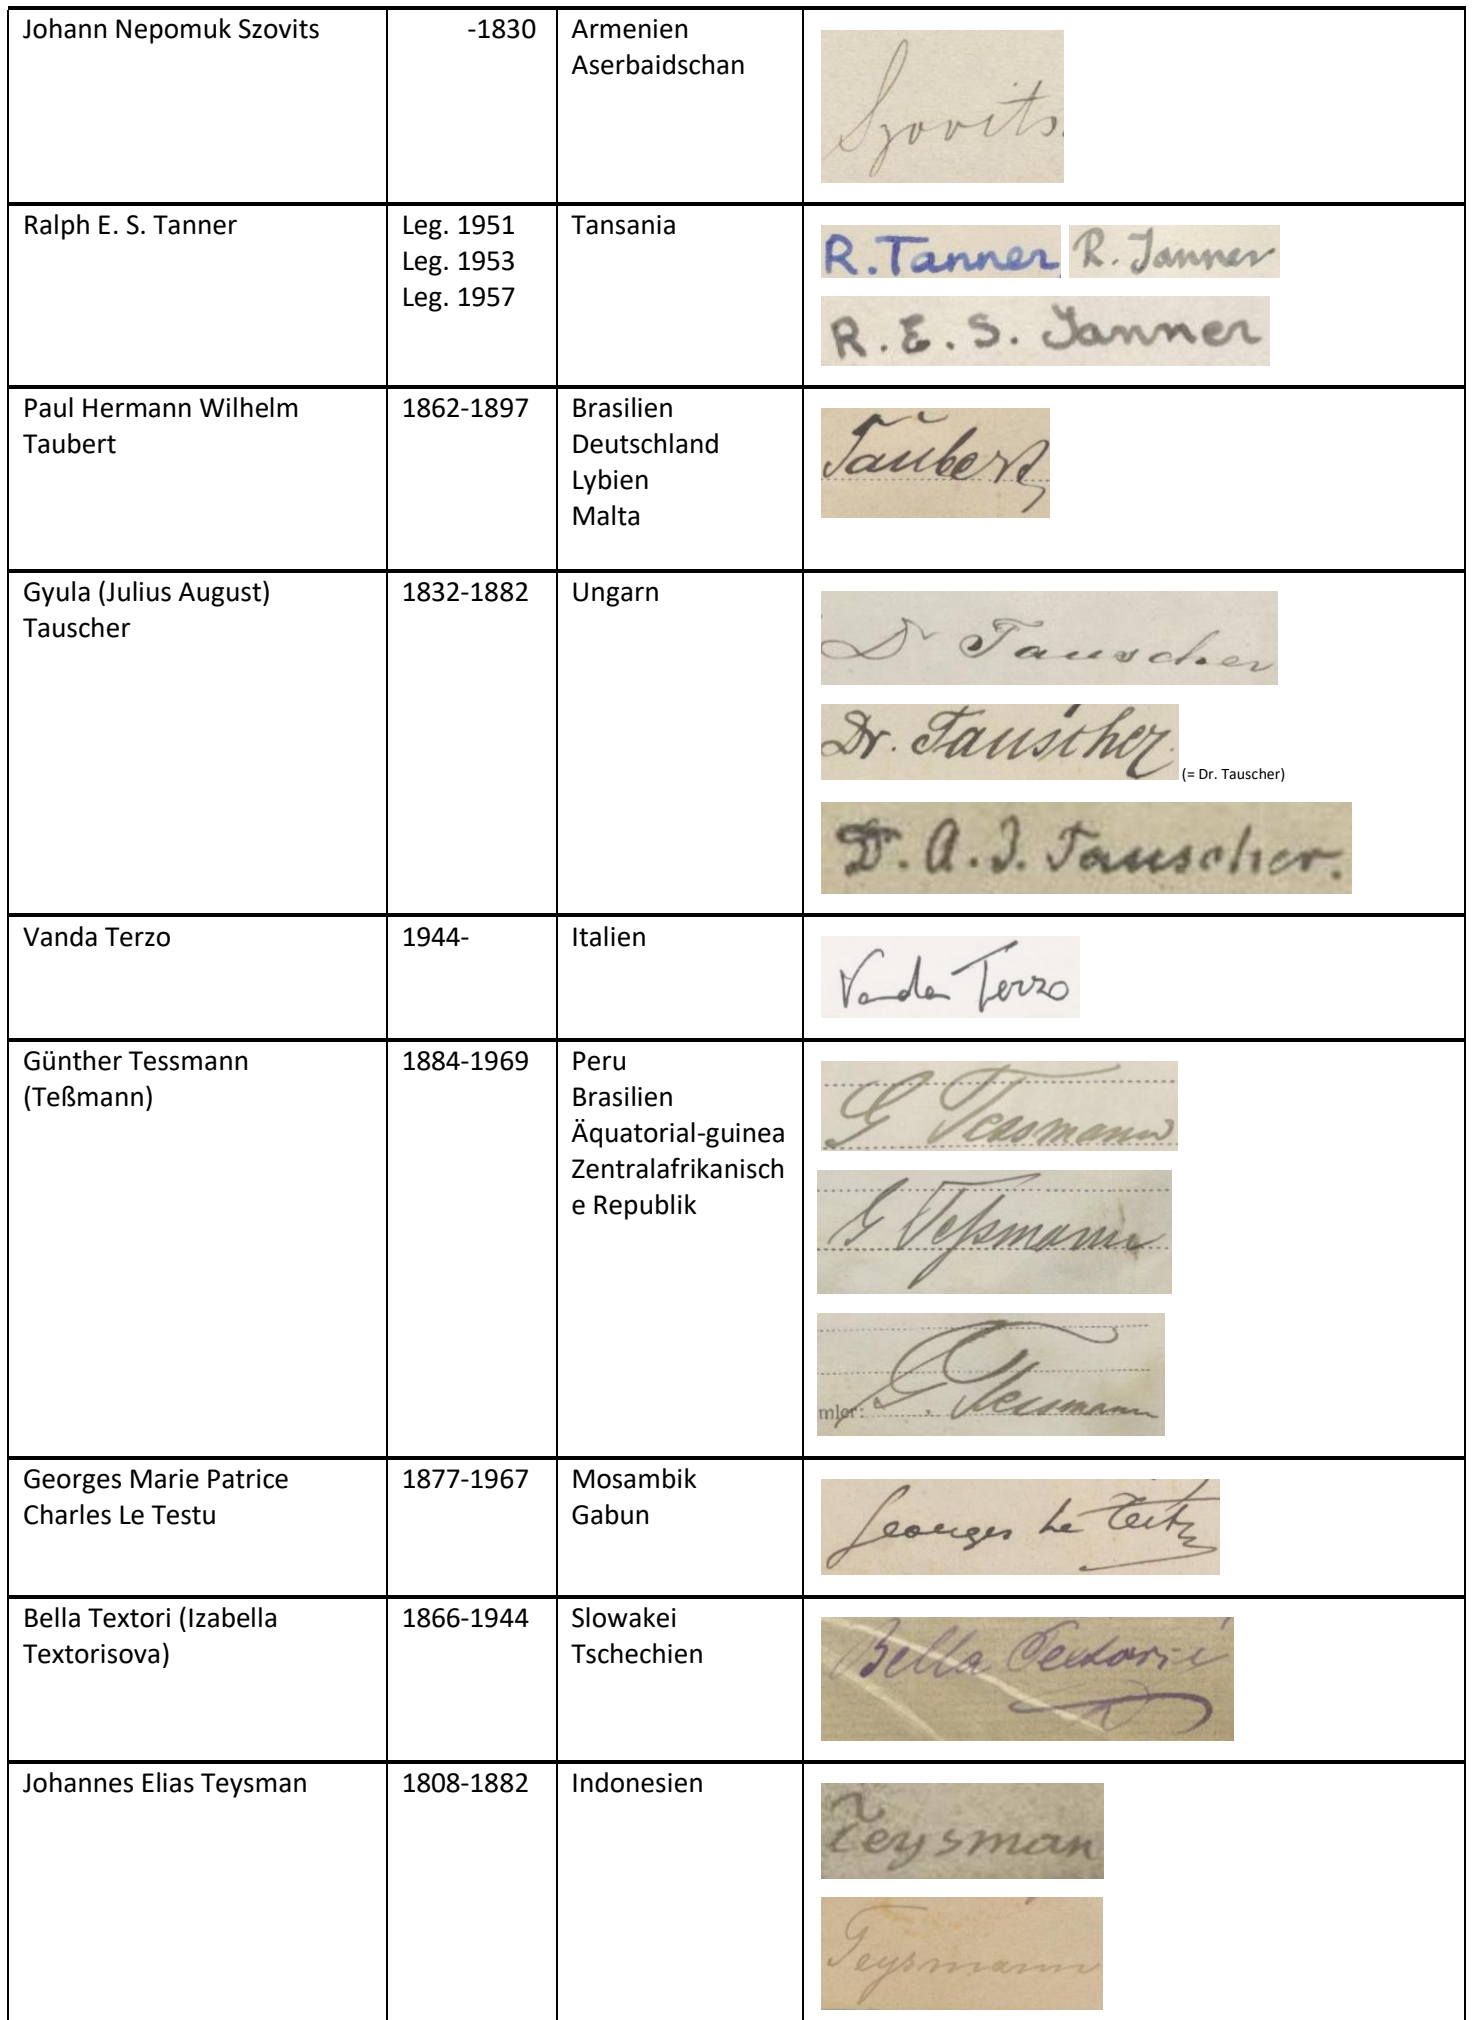 Johann Nepomuk Szovits -1830 Armenien
Aserbaidschan
Szovits.
Ralph E. S. Tanner Leg. 1951 Tansania
Leg. 1953
Leg. 1957
R. Tanner R. Tanner
R. E. S. Tanner
Paul Hermann Wilhelm 1862-1897 Brasilien
Taubert Deutschland
Lybien
Malta
Taubert
Gyula (Julius August) 1832-1882 Ungarn
Tauscher
Dr Tauscher
Dr. Tauscher (= Dr. Tauscher)
D. A. J. Tauscher.
Vanda Terzo 1944- Italien
Vanda Terzo
Günther Tessmann 1884-1969 Peru
(Teßmann) Brasilien
Äquatorial-guinea
Zentralafrikanisch
e Republik
G Tessmann
G Teßmann
mler: G. Tessmann
Georges Marie Patrice 1877-1967 Mosambik
Charles Le Testu Gabun
Georges Le Testu
Bella Textori (Izabella 1866-1944 Slowakei
Textorisova) Tschechien
Bella Textori
Johannes Elias Teysman 1808-1882 Indonesien
Teysman
Teysmann